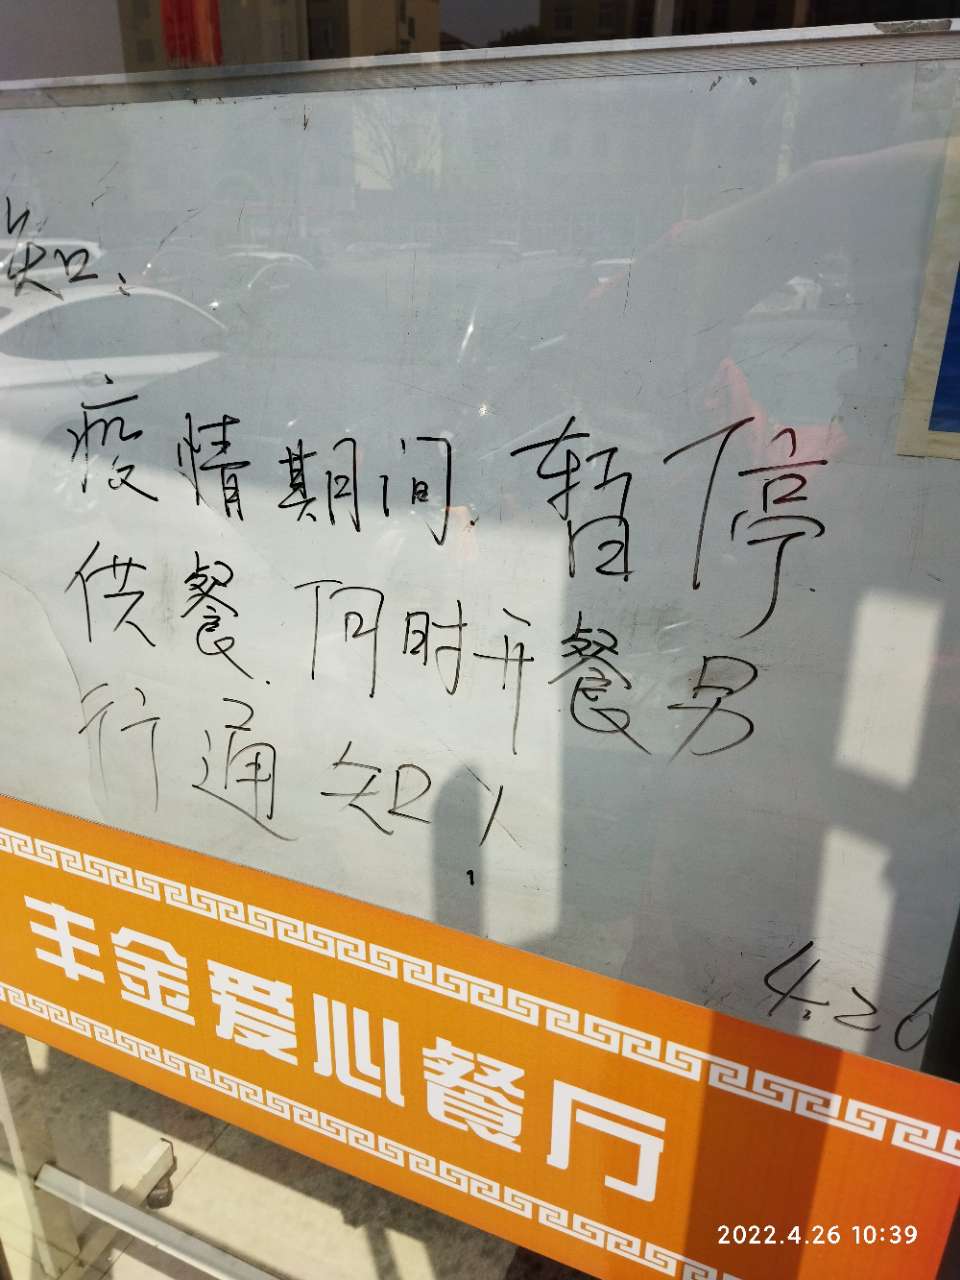 知:
疫情期间.暂停
供餐.何时开餐另
行通知!
4.26
丰金爱心餐厅
2022.4.26 10:39